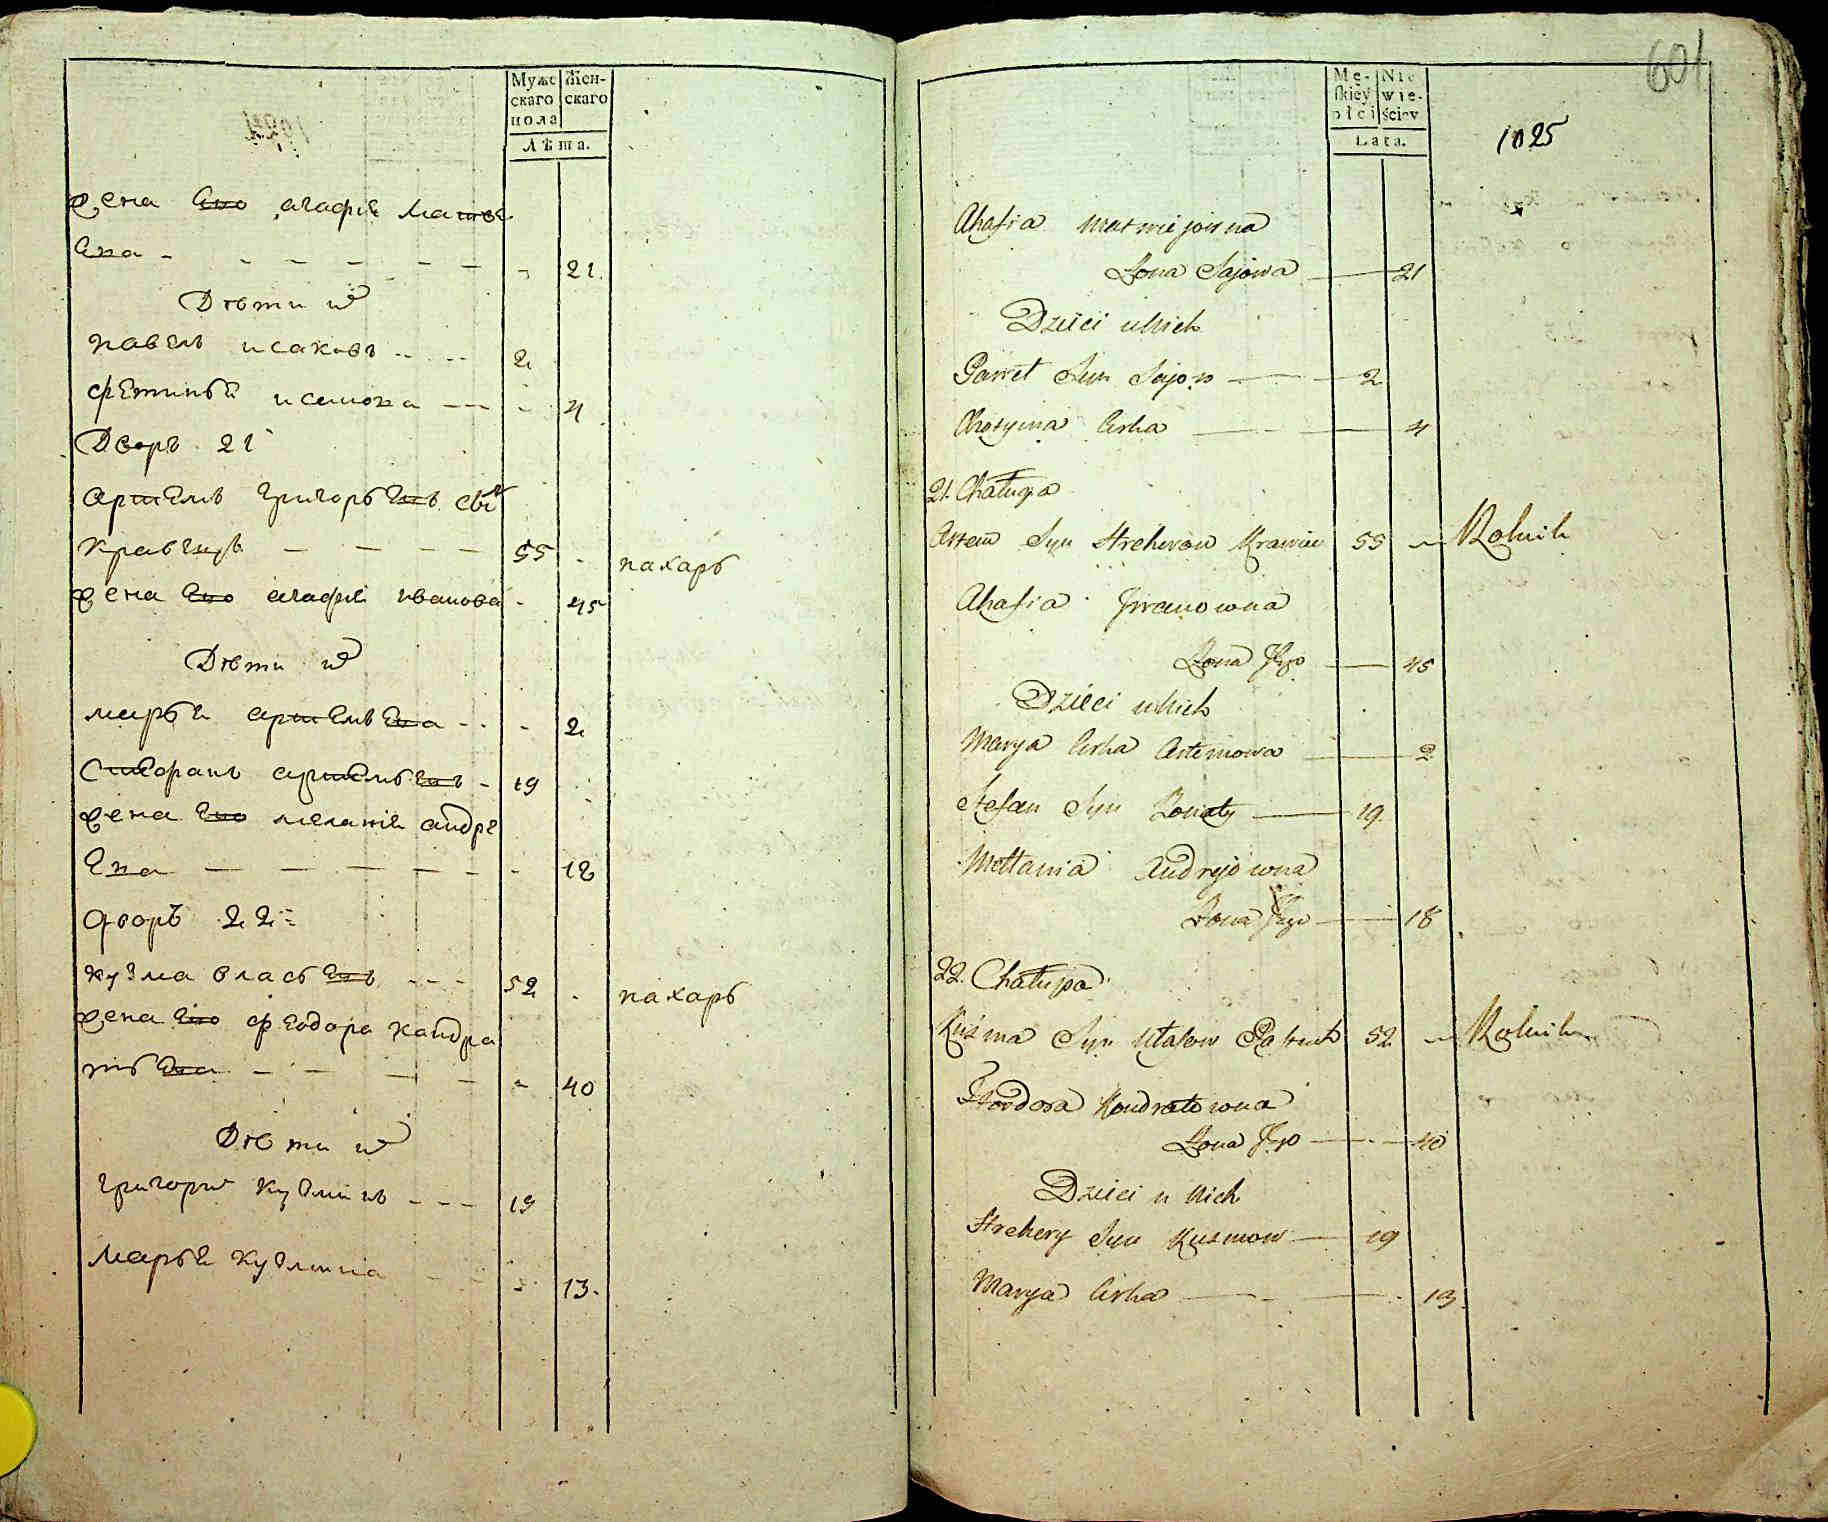 Муже
скаго
пола
Жен-
скаго
Лѣта.
жена Его агафиѣ Матвѣ
Ена - 21.
Дѣти ихъ
павелъ исаковъ 2
фетиньѣ исакова 4
Дворъ 21
Артемъ григорьевъ сынъ
кравецъ 55 пахарь
жена Его агафиѣ иванова 45
Дѣти ихъ
марьѣ артемьева 2
Стефанъ артемьевъ 19
жена Его меланиѣ андре
Ена 18
Дворъ 22
кузма власьевъ 52 пахарь
жена Его феодора кандра
тьева 40
Дѣти ихъ
григории кузминъ 19
марьѣ кузмина 13.
601
Mę-
skiey
płci
Nie
wie-
ściey
Lata.
1025
Ahafia Matwiejowna
Żona Sajowa 21
Dzieci u Nich
Paweł Syn Sajow 2
Chotyma Curka 4
21. Chałupa
Artem Syn Hrehorow Krawiec 55 Rolnik
Ahafia Jwanowna
Żona Jego 45
Dzieci u Nich
Marya Curka Artemowa 2
Stefan Syn Żonaty 19.
Mełania Andrejowna
Żona Jego 18
22. Chałupa
Kuzma Syn Ułasow 52 Rolnik
Teodora Kondratowna
Żona Jego 40
Dzieci u Nich
Hrehory Syn Kuzmow 19
Marya Curka 13.